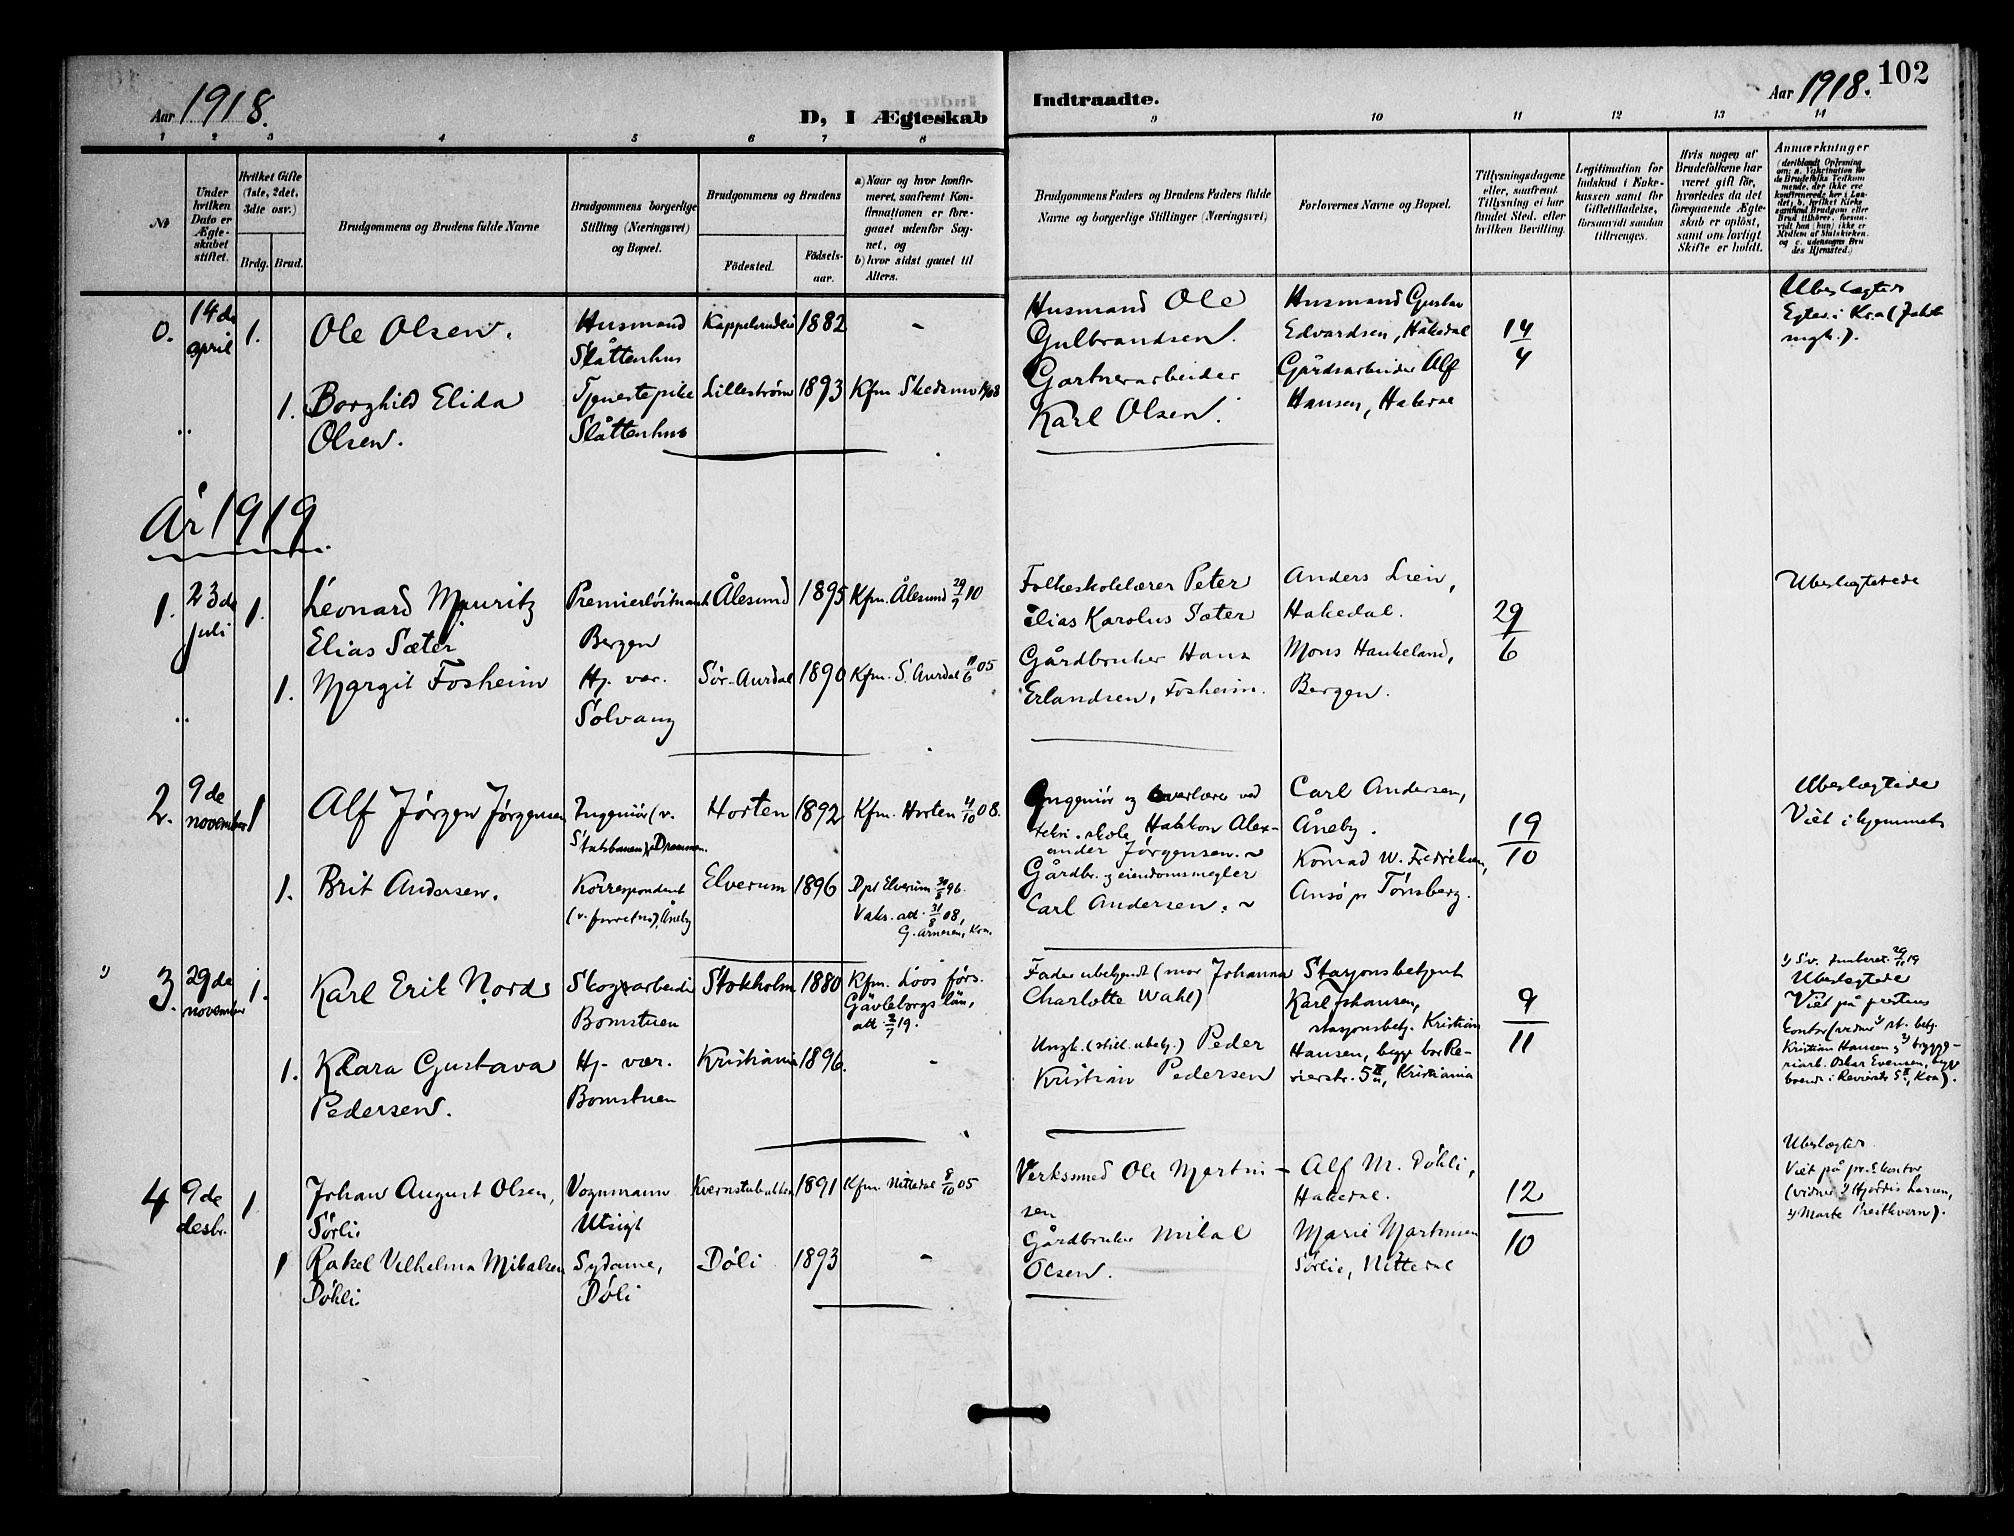 Aar 1918.
D, I Ægteskab
Indtraadte.
Aar 1918.
102
1 2 3 4 5 6 7 8 9 10 11 12 13 14
№
Under hvilken Dato er Ægteskabet stiftet.
Hvilket Gifte (1ste, 2det, 3die osv.)
Brdg. Brud.
Brudgommens og Brudens fulde Navne
Brudgommens borgerlige Stilling (Næringsvei) og Bopæl.
Brudgommens og Brudens
Födested.
Födselsaar.
a) Naar og hvor konfirmeret, saafremt Konfirmationen er foregaaet udenfor Sognet, og
b) hvor sidst gaaet til Alters.
Brudgommens Faders og Brudens Faders fulde Navne og borgerlige Stillinger (Næringsvei)
Forlovernes Navne og Bopæl.
Tillysningsdagene eller, saafremt Tillysning ei har fundet Sted, efter hvilken Bevilling.
Legitimation for Indskud i Enkekassen samt for Giftetilladelse, forsaavidt saadan tiltrænges.
Hvis nogen af Brudefolkene har været gift før, hvorledes da det foregaaende Ægteskab er opløst, samt om lovligt Skifte er holdt.
Anmærkninger
0. 14de april 1.
Ole Olsen.
Husmand
Slåttenhus
1882
-
Husmand Ole
Gulbrandsen.
Husmand Gustav
Edvardsen, Hakedal
14/4
1. Borghild Elida
Olsen.
Tjenestepike
Slåttenhus
Lilleström
1893
Kfm. Skedsmo 1908
Gartnerarbeider
Karl Olsen.
Gårdsarbeider Alf
Hansen, Hakedal
År 1919
1. 23de juli 1.
Leonard Mauritz
Elias Sæter
Premierløitnant
Bergen
Ålesund
1895
Kfm. Ålesund 29/9 10
Folkeskolelærer Peter
Elias Karolus Sæter
Anders Lien,
Hakedal.
29/6
Ubeslægtede
1. Margit Fosheim
Hj. vær.
Solvang
Sør-Aurdal
1890
Kfm. S. Aurdal 11/6 05
Gårdbruker Hans
Erlandsen, Fosheim.
Mons Haukeland,
Bergen.
2. 9de november 1
Alf Jørgen Jørgensen
Ingeniör (v.
Statsbanen), Drammen.
Horten
1892
Kfm. Horten 4/10 08.
Ingeniör og overlærer ved
tekn. skole Håkon Alex-
ander Jørgensen.
Carl Andersen,
Åneby.
19/10
Ubeslægtede
Viet i hjemmet
1. Brit Andersen.
Korrespondent
(v. forretn.), Åneby
Elverum
1896
Dpt Elverum 30/8 96.
Vaks. att. 31/8 08,
G. Arnesen, Kra.
Gårdbr. og eiendomsmegler
Carl Andersen.
Konrad W. Fredriksen,
Ansø pr Tönsberg.
1) 3. 29de november 1.
Karl Erik Nord
Skogsarbeider
Bomstuen
Stokholm
1880
Kfm. Loos förs.
Gävleborgs län,
att. 2/7 19.
Fader ubekjendt (mor Johanna
Charlotte Wahl)
Stasjonsbetjent
Karl Johansen,
stasjonsbetj. Kristian
Hansen, begge bor Re-
vierstr. 5 II, Kristiania
9/11
Ubeslægtede
Viet på prestens
kontor (vidner 1) st. betj.
Kristian Hansen, 2) brygge-
riarb. Oskar Evensen, begge
boende i Revierstr 5 II, Kra).
1. Klara Gustava
Pedersen.
Hj. vær.
Bomstuen
Kristiania
1896.
-
Ungk. (still. ubekj.) Peder
Kristian Pedersen
4 9de desbr. 1
Johan August Olsen,
Sørli.
Vognmann
Utsigt
Kvernstubakken
1891
Kfm. Nittedal 8/10 05
Verksmed Ole Martin-
sen
Alf M. Döhli,
Hakedal.
12/10
Ubeslægtet
Viet på pr.s kontor
(vidner 1) Hjördis Larsen,
2) Marte Prestkvern).
1 Rakel Vilhelma Mikalsen
Döhli.
Sydame,
Döli
Döli
1893
-
Gårdbruker Mikal
Olsen.
Marie Martinsen
Sørlie, Nittedal